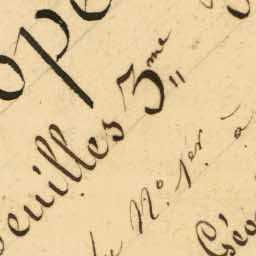 ope
euilles 3me
No. 1er. à
Géo